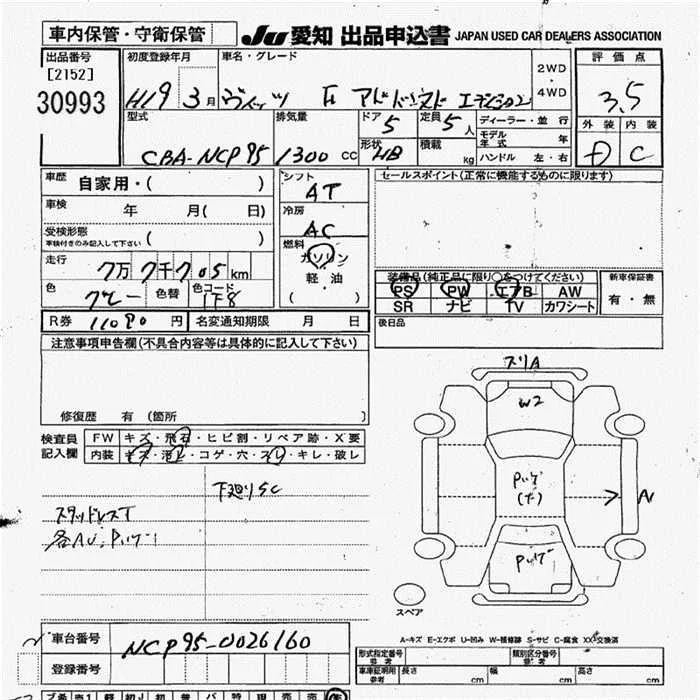 車内保管・守衛保管
JU 愛知 出品申込書 JAPAN USED CAR DEALERS ASSOCIATION
出品番号 初度登録年月 車名・グレード 評価点
[2152] 2WD
30993 H19 3月 ヴィッツ F アドバンスド エディション ・4WD 3.5
型式 排気量 ドア 定員 ディーラー・並行 外装 内装
5 5人 モデル年式 年
CBA-NCP95 1300cc 形状 HB 積載 kg ハンドル 左・右 D C
車歴 自家用・( ) シフト AT セールスポイント(正常に機能するものに限ります)
車検 年 月( 日) 冷房 AC
受検形態 車検付きのみ記入して下さい ( ) 燃料
走行 7万7千705km ガソリン 装備品(純正品に限り○をつけてください) 新車保証書
色 グレー 色替 色コード 1F8 軽・油 ( ) PS PW エアB AW 有・無
SR ナビ TV カワシート
R券 11090円 名変通知期限 月 日 後日品
注意事項申告欄(不具合内容等は具体的に記入して下さい)
修復歴 有 (箇所
検査員記入欄 FW キズ・飛石・ヒビ割・リペア跡・X要
内装 キズ・汚レ・コゲ・穴・スレ・キレ・破レ
下廻りSC
スタッドレスT
各AU.Pハゲ
スリA
W2
Pハゲ
(大)
A
Pハゲ
スペア
A-キズ E-エクボ U-凹み W-補修跡 S-サビ C-腐食 XX-交換済
車台番号 NCP95-0026160
登録番号
形式指定番号 参考 類別区分番号 参考
車庫証明用 参考 長さ cm 幅 cm 高さ cm